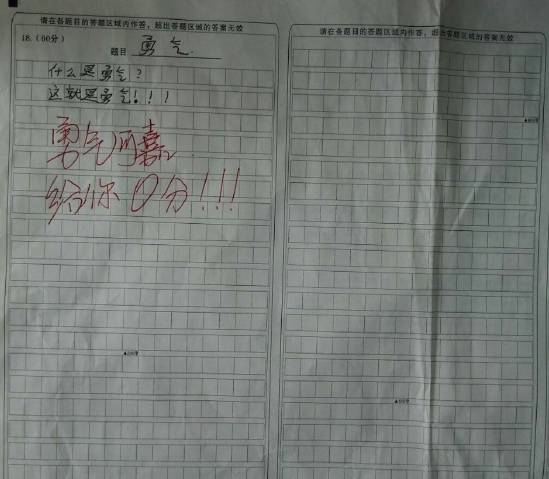 请在各题目的答题区域内作答，超出答题区域的答案无效
18.（60分）
题目 勇气
什么是勇气？
这就是勇气！！！
勇气可嘉
给你0分!!!
请在各题目的答题区域内作答，超出答题区域的答案无效